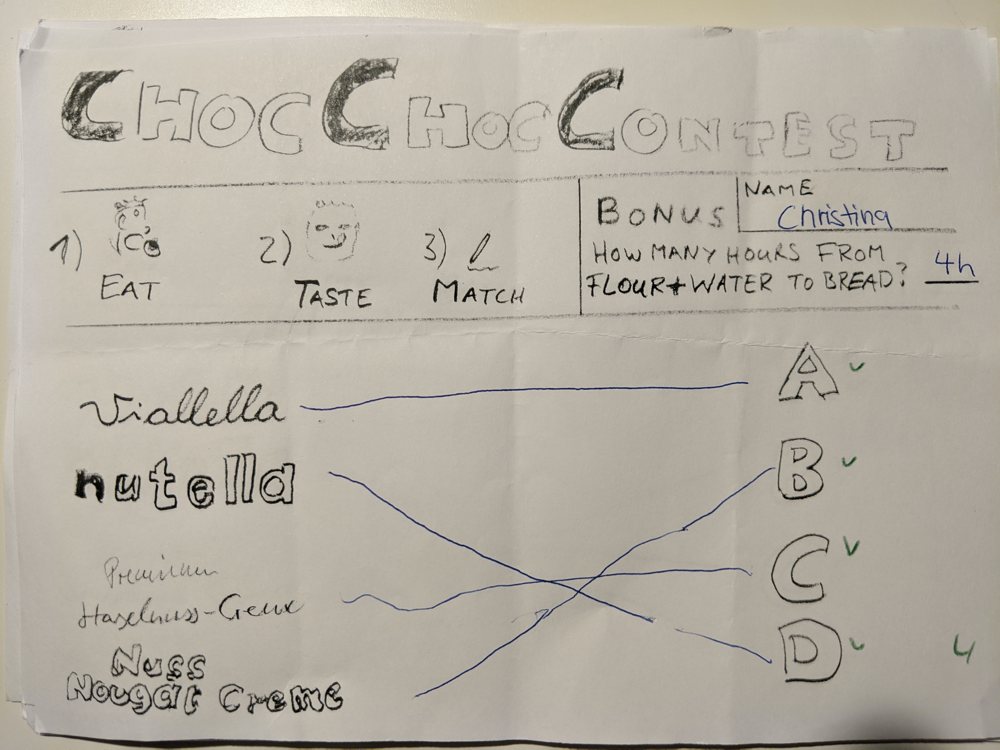 CHOC CHOC CONTEST
1) EAT
2) TASTE
3) MATCH
BONUS
NAME
Christina
HOW MANY HOURS FROM
FLOUR + WATER TO BREAD? 4h
Viallella
nutella
Premium
Haselnuss-Creme
Nuss
Nougat Creme
A
B
C
D
4